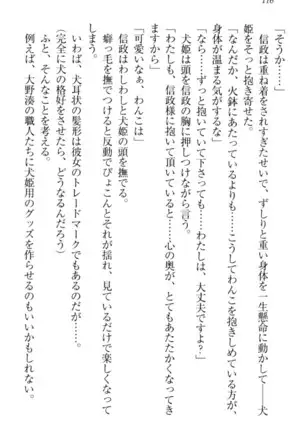 116
「そうか……」
　信政は重ね着をされすぎたせいで、ずしりと重い身体を一生懸命に動かして──犬
姫をそっと抱き寄せた。
「なんだか、火鉢にあたっているよりも……こうしてわんこを抱きしめている方が、
身体が温まる気がするな」
「なら……ずっと抱いていて下さっても……わたしは、大丈夫ですよ？」
　犬姫は信政の胸に押しつけながら言う。
「わたしも、信政様に抱いて頂いていると……心の奥が、とてもあたたかくなってき
ますから」
「可愛いなぁ、わんこは」
　信政はわしわしと犬姫の頭を撫でる。
　癖っ毛を撫でつけると反動でぴょこんとそれが揺れ、見ているだけで楽しくなって
しまう。
　いわば、犬耳状の髪形は彼女のトレードマークでもあるのだが……。
（完全に犬の格好をさせたら、どうなるんだろう）
　ふと、そんなことを考える。
　犬姫がいれば、大野湊の職人たちに犬姫用のグッズを作らせるのもいいかもしれない。